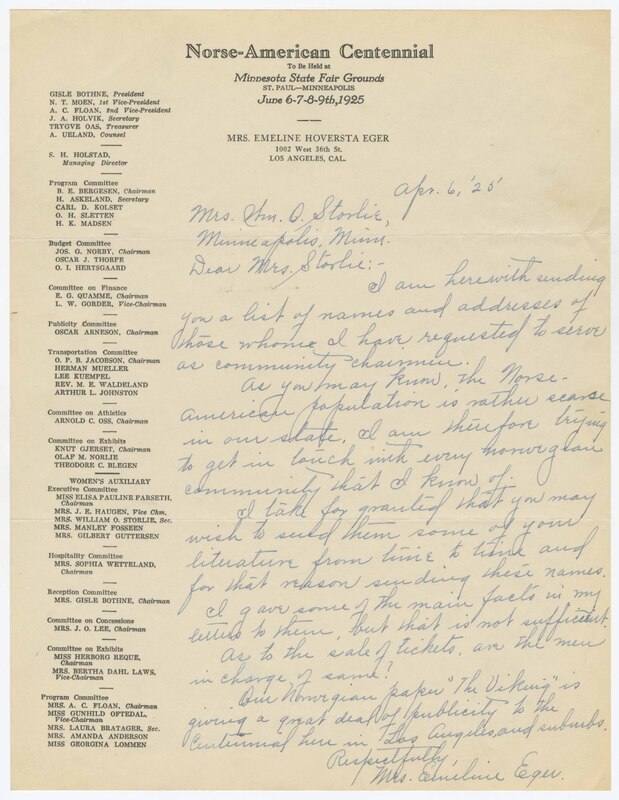 Norse-American Centennial
To Be Held at
Minnesota State Fair Grounds
ST. PAUL—MINNEAPOLIS
June 6-7-8-9th, 1925
MRS. EMELINE HOVERSTA EGER
1002 West 36th St.
LOS ANGELES, CAL.
GISLE BOTHNE, President
N. T. MOEN, 1st Vice-President
A. C. FLOAN, 2nd Vice-President
J. A. HOLVIK, Secretary
TRYGVE OAS, Treasurer
A. UELAND, Counsel
S. H. HOLSTAD,
Managing Director
Program Committee
B. E. BERGESEN, Chairman
H. ASKELAND, Secretary
CARL D. KOLSET
O. H. SLETTEN
H. K. MADSEN
Budget Committee
JOS. G. NORBY, Chairman
OSCAR J. THORPE
O. I. HERTSGAARD
Committee on Finance
E. G. QUAMME, Chairman
L. W. GORDER, Vice-Chairman
Publicity Committee
OSCAR ARNESON, Chairman
Transportation Committee
O. P. B. JACOBSON, Chairman
HERMAN MUELLER
LEE KUEMPEL
REV. M. E. WALDELAND
ARTHUR L. JOHNSTON
Committee on Athletics
ARNOLD C. OSS, Chairman
Committee on Exhibits
KNUT GJERSET, Chairman
OLAF M. NORLIE
THEODORE C. BLEGEN
WOMEN'S AUXILIARY
Executive Committee
MISS ELISA PAULINE FARSETH,
Chairman
MRS. J. E. HAUGEN, Vice Chm.
MRS. WILLIAM O. STORLIE, Sec.
MRS. MANLEY FOSSEEN
MRS. GILBERT GUTTERSEN
Hospitality Committee
MRS. SOPHIA WETTELAND,
Chairman
Reception Committee
MRS. GISLE BOTHNE, Chairman
Committee on Concessions
MRS. J. O. LEE, Chairman
Committee on Exhibits
MISS HERBORG REQUE,
Chairman
MRS. BERTHA DAHL LAWS,
Vice-Chairman
Program Committee
MRS. A. C. FLOAN, Chairman
MISS GUNHILD OFTEDAL,
Vice-Chairman
MRS. LAURA BRATAGER, Sec.
MRS. AMANDA ANDERSON
MISS GEORGINA LOMMEN
Apr. 6, '25
Mrs. Wm. O. Storlie,
Minneapolis, Minn.
Dear Mrs. Storlie:-
I am herewith sending
you a list of names and addresses of
those whome I have requested to serve
as community chairmen.
As you may know, the Norse-
American population is rather scarse
in our state. I am therefore trying
to get in touch with every norwegian
community that I know of.
I take for granted that you may
wish to send them some of your
literature from time to time and
for that reason sending these names.
I gave some of the main facts in my
letters to them, but that is not sufficient.
As to the sale of tickets, are the men
in charge of same?
Our Norwegian paper "The Viking" is
giving a great deal of publicity to the
Centennial here in Los Angeles, and suburbs.
Respectfully,
Mrs. Emeline Eger.